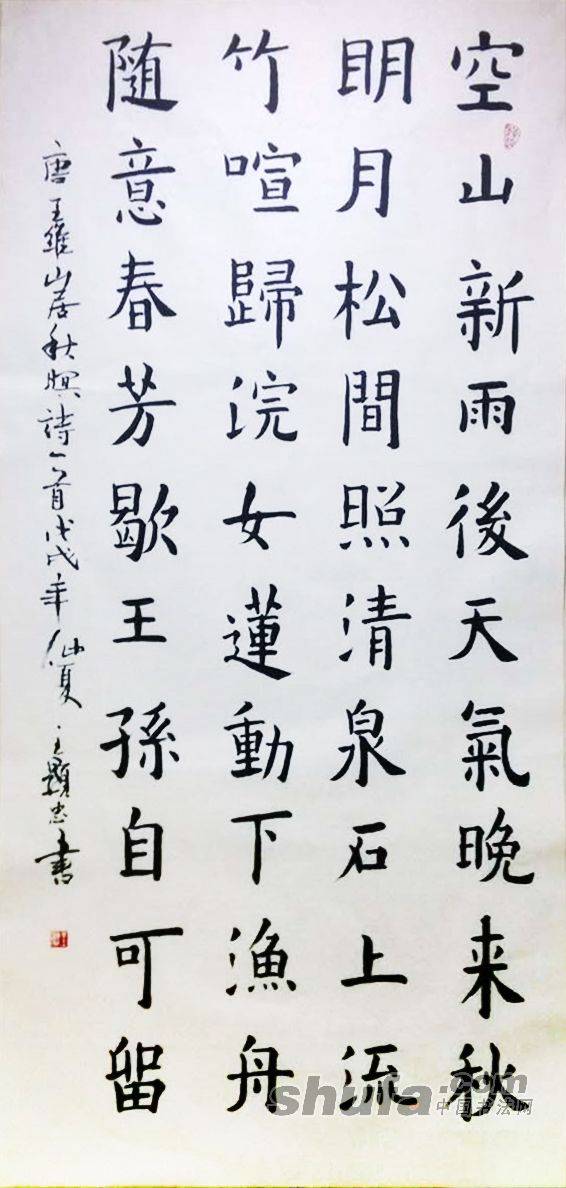 空山新雨後天氣晚来秋
明月松間照清泉石上流
竹喧歸浣女蓮動下漁舟
随意春芳歇王孫自可留
唐王維山居秋暝詩一首戊戌年仲夏王顯忠書
shufa.com
中国书法网